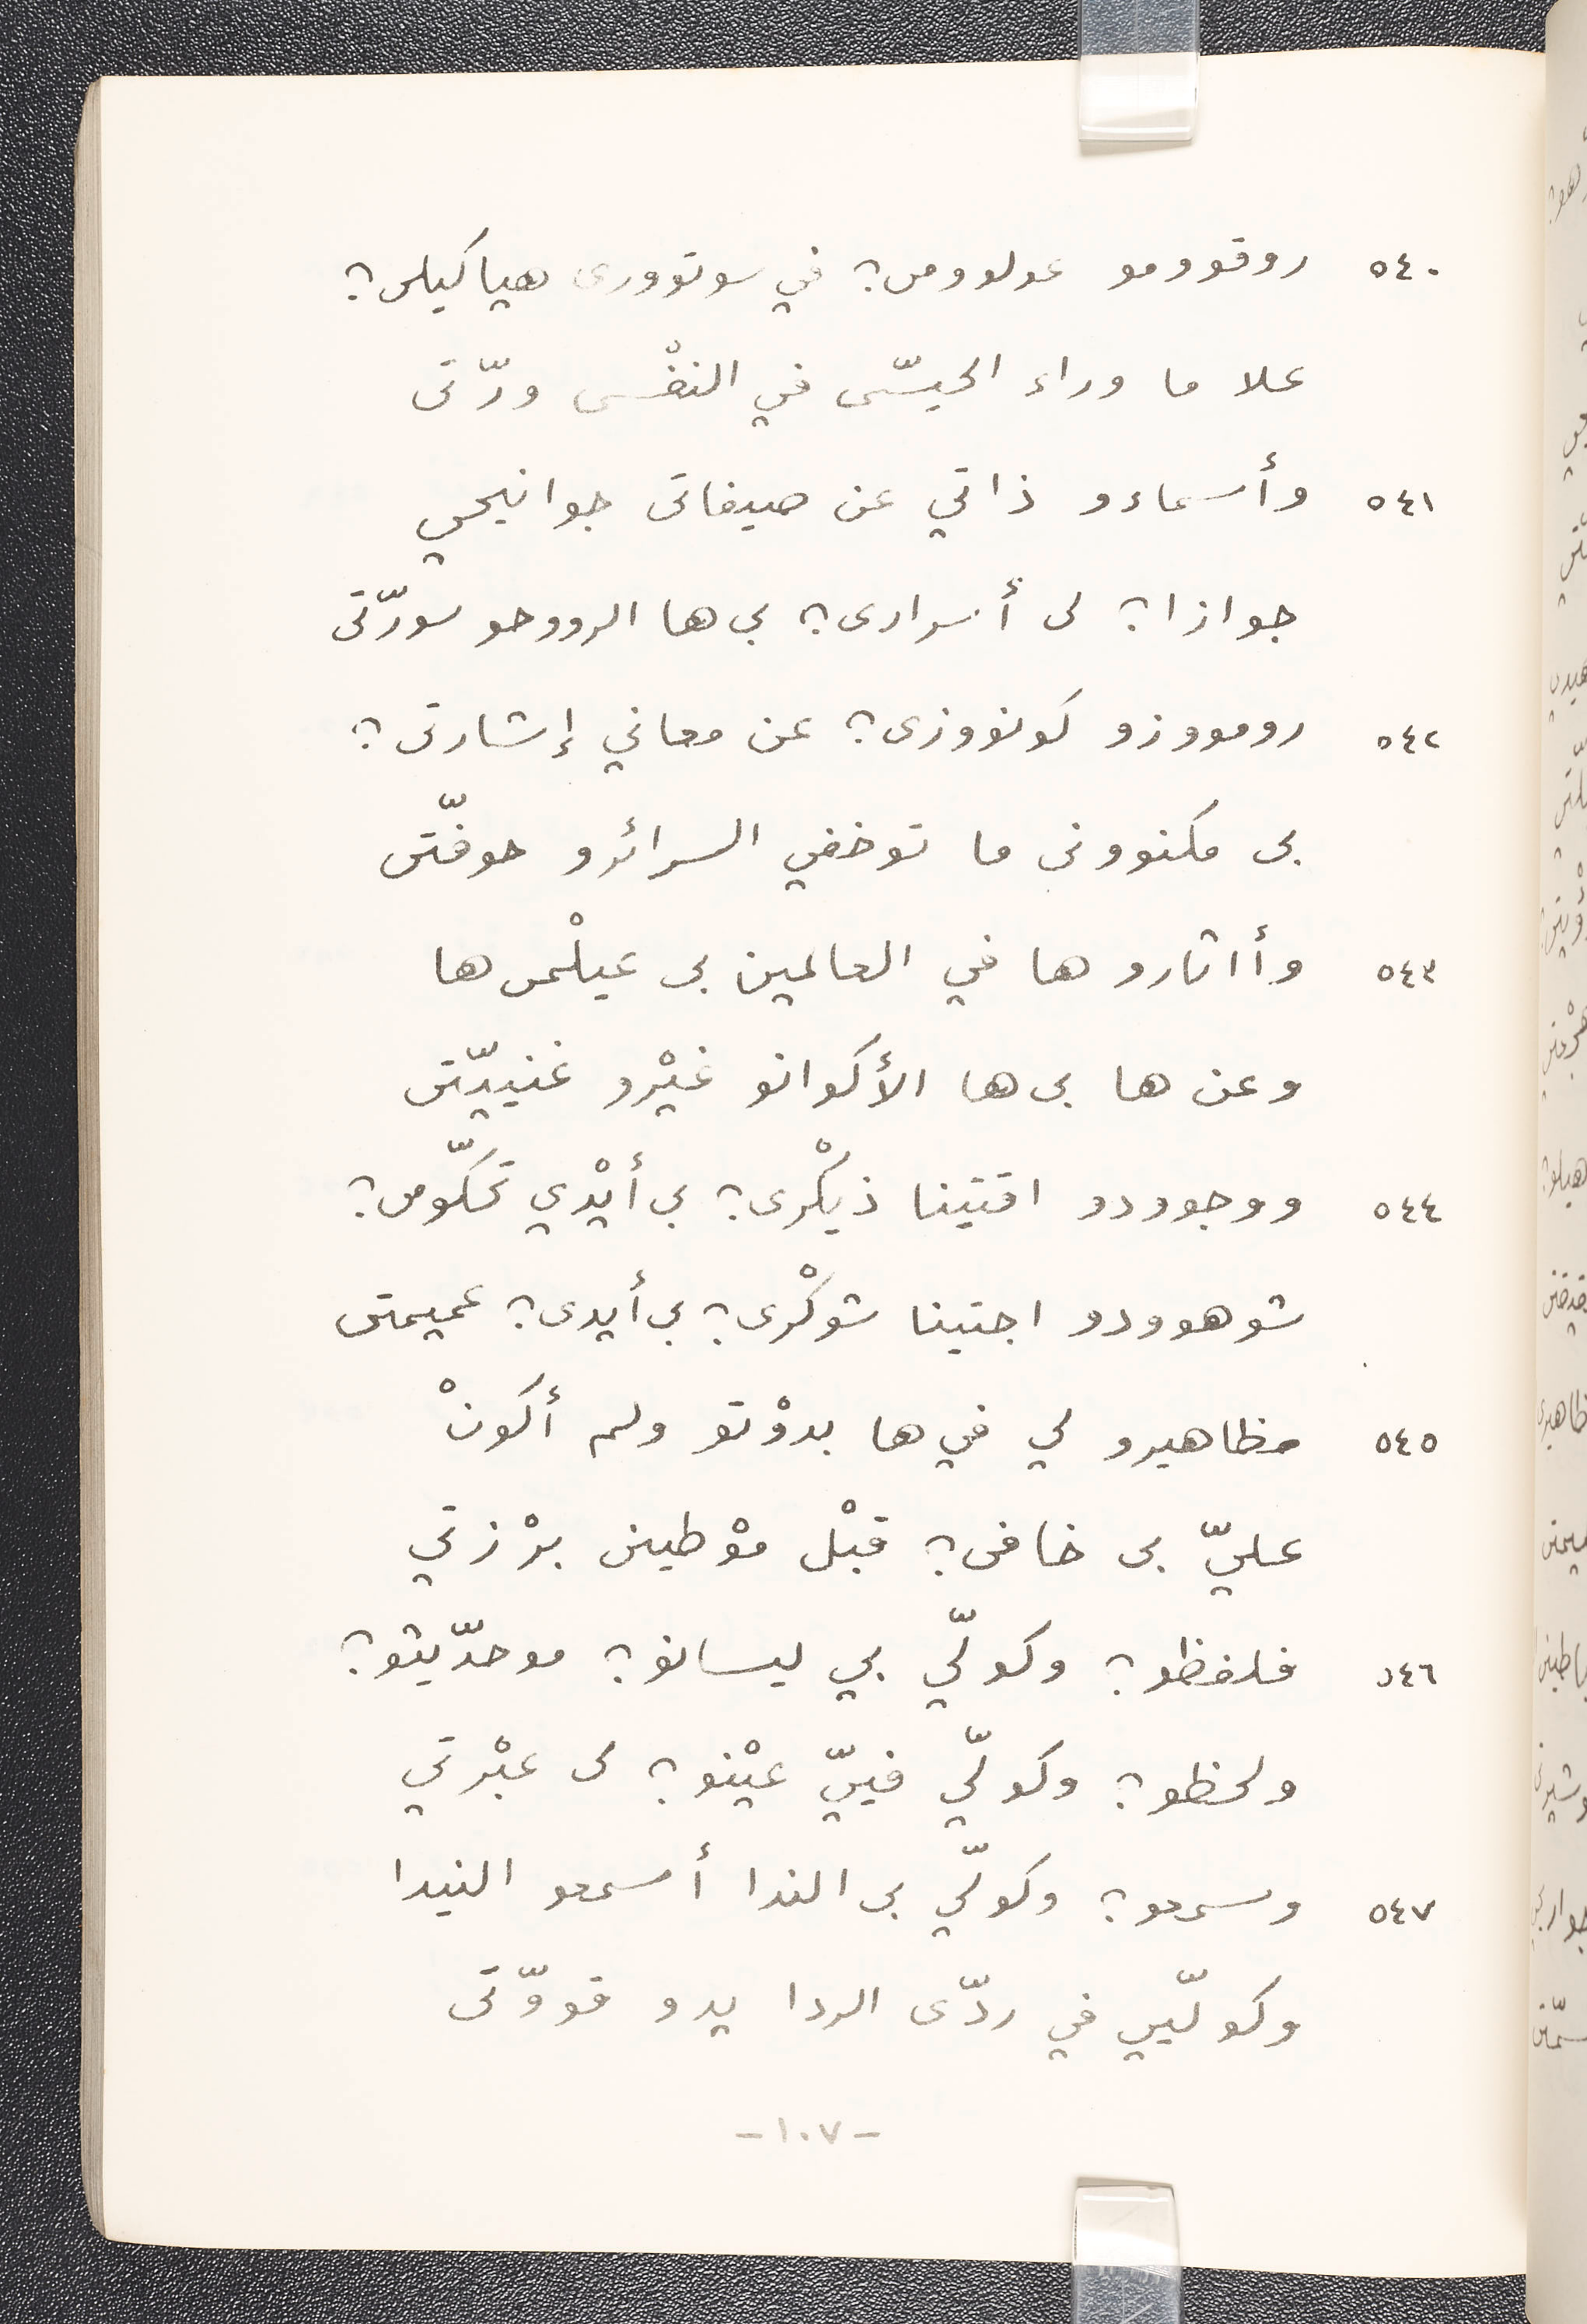 ٥٤٠ روقوومو عولوومى؟ في سوتوورى هياكيلى؟
علا ما وراء الحيسّى في النفْسى ورّتى
٥٤١ وأسماءو ذاتي عن صيفاتى جوانيحي
جوازا؟ لى أسرارى؟ بى ها الرووحو سورّتى
٥٤٢ روموزو كونووزى؟ عن معاني إشارتى؟
بى مكنوونى ما توخفي السرائرو حوفّتى
٥٤٣ وأاثارو ها في العالمين بى عيلْمى ها
وعن ها بى ها الأكوانو غيْرو غنييّتى
٥٤٤ ووجوودو اقتينا ذيكْرى؟ بى أيْدي تحكّومى؟
شوهوودو اجتينا شوكْرى؟ بى أيدى؟ عميمتى
٥٤٥ مظاهيرو لي في ها بدوْتو ولم أكونْ
عليّ بى خافى؟ قبْل موْطين برْزتي
٥٤٦ فلفظو؟ وكولّي بي ليسانو؟ موحدّيثو؟
ولحظو؟ وكولّي فييّ عيْنو؟ لى عبْرتي
٥٤٧ وسمعو؟ وكولّي بى الندا أسمعو النيدا
وكولّيي في ردّى الردا يدو قووّتى
-١٠٧-